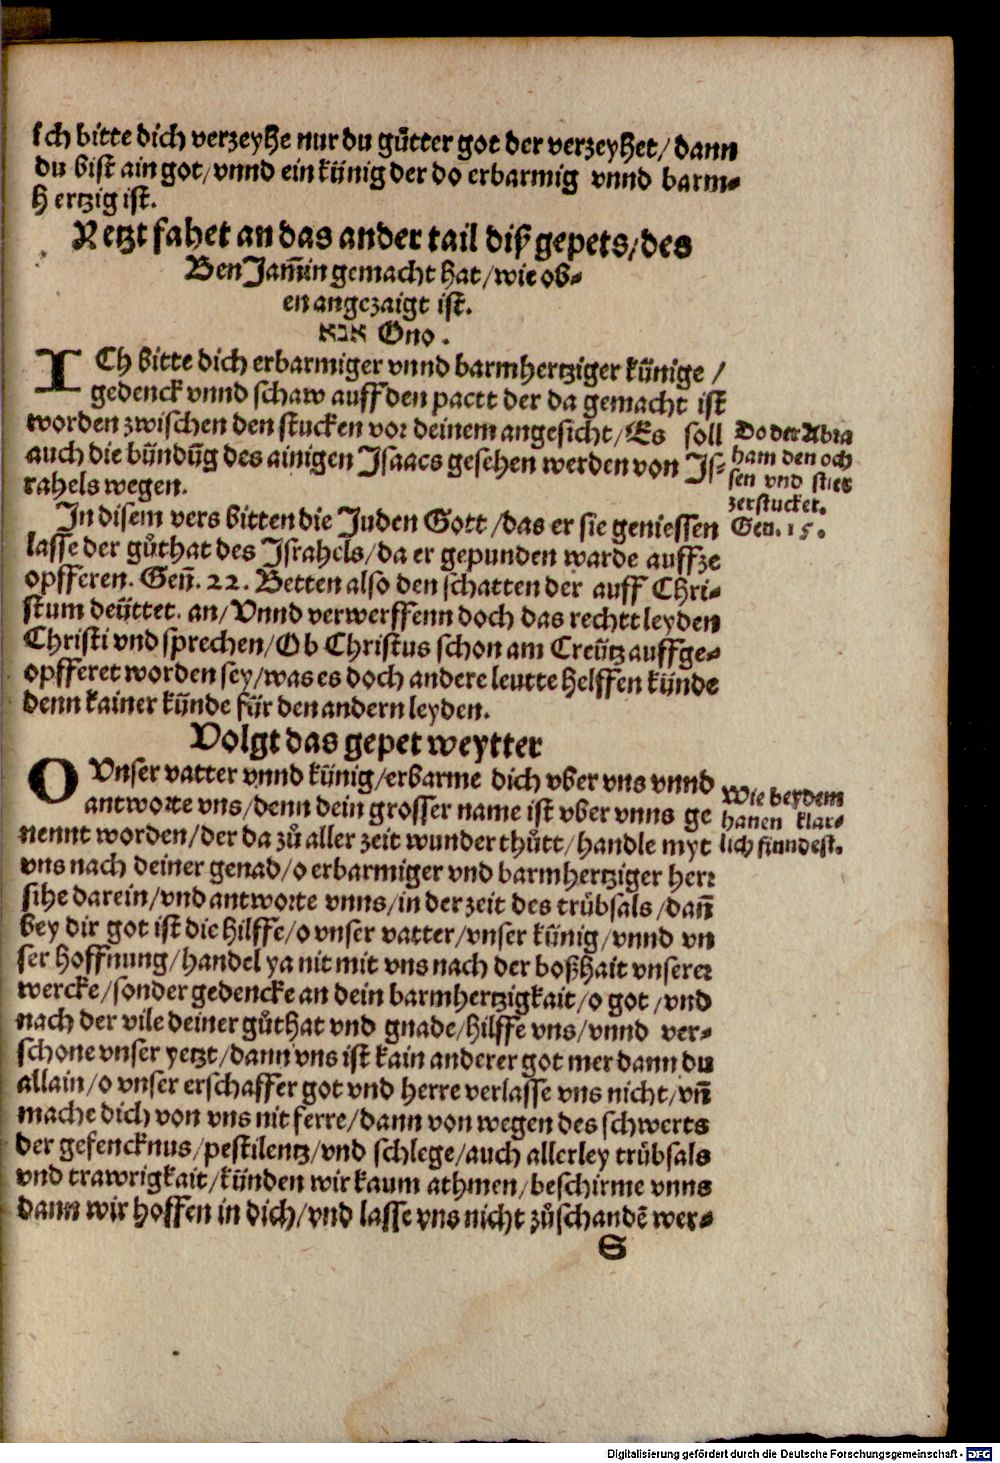 ich bitte dich verzeyhe nur du gůtter got der verzeyhet/ dann
du bist ain got/ vnnd ein künig der do erbarmig vnnd barm-
hertzig ist.
Yetzt fahet an das ander tail diß gepets/ des
Ben Jam̄in gemacht hat/ wie ob-
en angezaigt ist.
אנא Ono.
ICh bitte dich erbarmiger vnnd barmhertziger künige /
gedenck vnnd schaw auff den pactt der da gemacht ist
worden zwischen den stucken vor deinem angesicht/ Es soll
auch die bündūg des ainigen Isaacs gesehen werden von Js-
rahels wegen.
Do der Abra
ham den och
sen vnd stier
zerstucket.
Gen. 15.
In disem vers bitten die Juden Gott / das er sie geniessen
lasse der gůthat des Jsrahels/ da er gepunden warde auffze
opfferen. Gen̄. 22. Betten also den schatten der auff Chri-
stum deüttet. an/ Vnnd verwerffenn doch das rechtt leyden
Christi vnd sprechen/ Ob Christus schon am Creütz auffge-
opfferet worden sey/ was es doch andere leutte helffen künde
denn kainer künde für den andern leyden.
Volgt das gepet weytter
O Vnser vatter vnnd künig/ erbarme dich vber vns vnnd
antworte vns/ denn dein grosser name ist vber vnns ge
nennt worden/ der da zů aller zeit wunder thůtt/ handle myt
Wie bey dem
hanen klar-
lich finndest.
vns nach deiner genad/ o erbarmiger vnd barmhertziger herr
sihe darein/ vnd antworte vnns/ in der zeit des trübsals / dan̄
bey dir got ist die hilffe/ o vnser vatter/ vnser künig/ vnnd vn
ser hoffnung/ handel ya nit mit vns nach der boßhait vnserer
wercke/ sonder gedencke an dein barmhertzigkait/ o got / vnd
nach der vile deiner gůthat vnd gnade/ hilffe vns/ vnnd ver-
schone vnser yetzt/ dann vns ist kain anderer got mer dann du
allain/ o vnser erschaffer got vnd herre verlasse vns nicht/ vn̄
mache dich von vns nit ferre/ dann von wegen des schwerts
der gefencknus/ pestilentz/ vnd schlege/ auch allerley trübsals
vnd trawrigkait/ künden wir kaum athmen/ beschirme vnns
dann wir hoffen in dich/ vnd lasse vns nicht zůschandē wer-
S
Digitalisierung gefördert durch die Deutsche Forschungsgemeinschaft - DFG